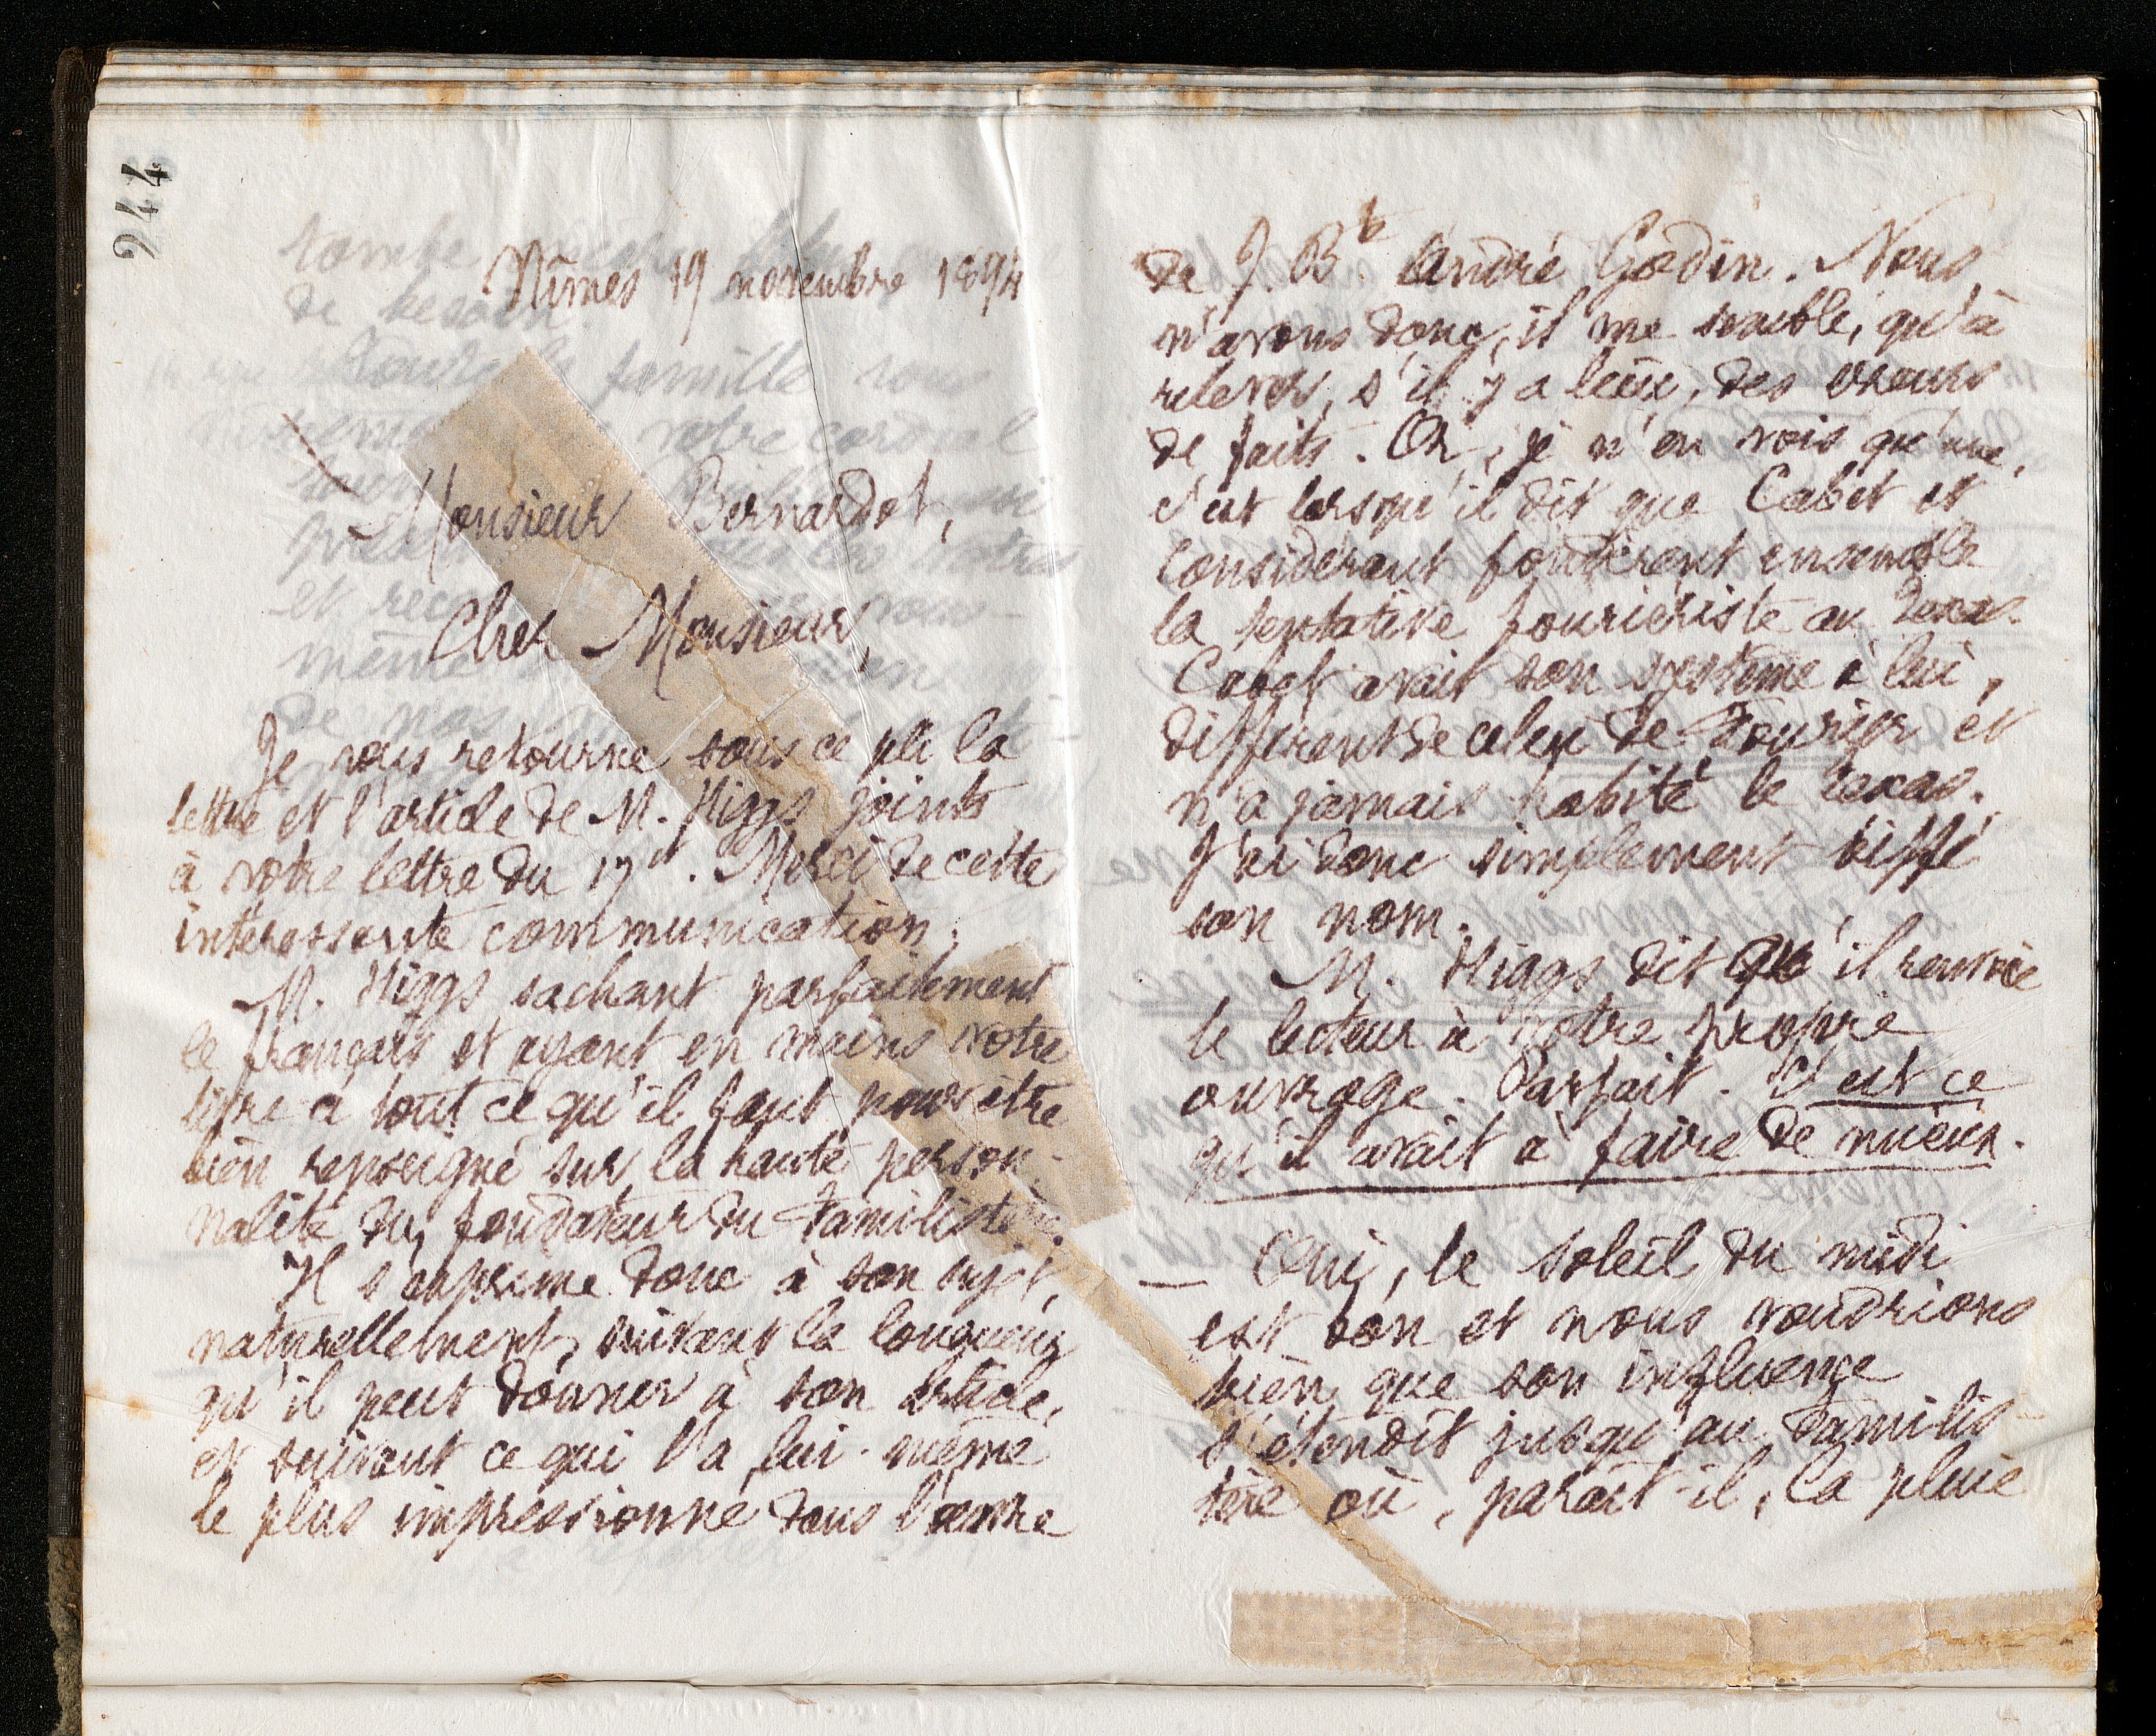 244
Nîmes 19 novembre 1894
Monsieur Bernardot,
Cher Monsieur,
Je vous retourne sous ce pli la
lettre et l'article de M. Higgs joints
à votre lettre du 17 ct. Merci de cette
intéressante communication.
M. Higgs sachant parfaitement
le français et ayant en mains votre
livre a tout ce qu'il faut pour être
bien renseigné sur la haute person-
nalité du fondateur du Familistère.
Il s'exprime donc à son sujet,
naturellement, suivant la longueur
qu'il peut donner à son article,
et suivant ce qui l'a lui-même
le plus impressionné dans l'œuvre
de J. Bte André Godin. Nous
n'avons donc, il me semble, qu'à
relever, s'il y a lieu, des erreurs
de faits. Or, je n'en vois qu'une,
c'est lorsqu'il dit que Cabet et
Considérant fondèrent ensemble
la tentative fouriériste au Texas.
Cabet avait son système à lui,
différent de celui de Fourier et
n'a jamais habité le Texas.
J'ai donc simplement biffé
son nom.
M. Higgs dit qu'il renvoie
le lecteur à votre propre
ouvrage. Parfait. C'est ce
qu'il avait à faire de mieux.
— Oui, le soleil du midi
est bon et nous voudrions
bien que son influence
s'étendît jusqu'au Familis
tère où, paraît-il, la pluie